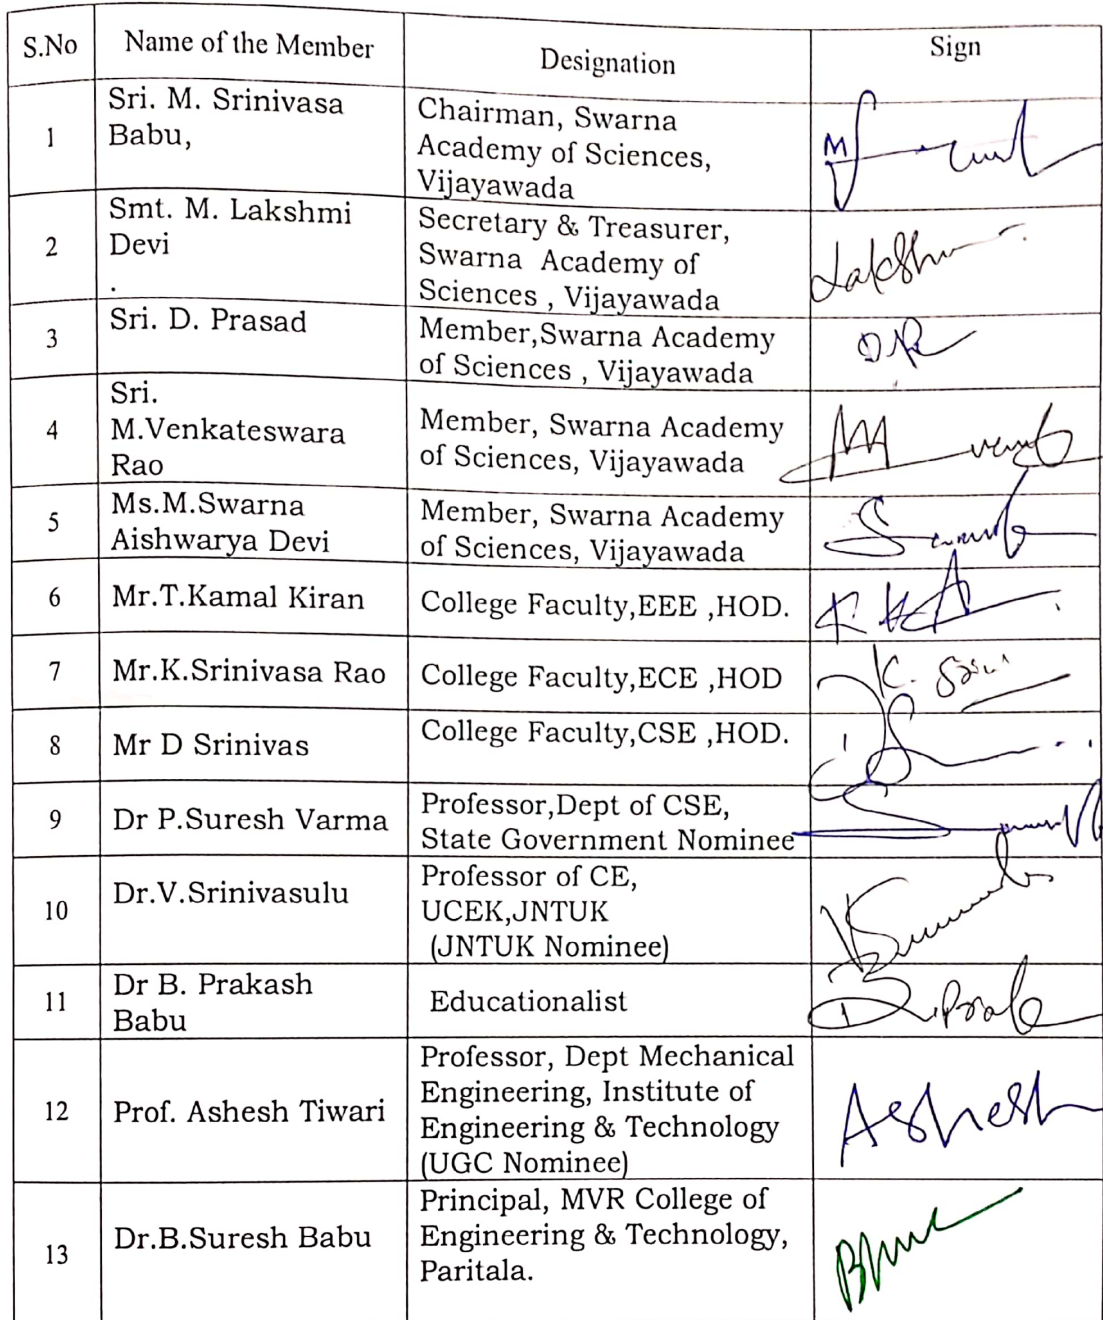 S.No Name of the Member Designation Sign
1 Sri. M. Srinivasa Babu, Chairman, Swarna Academy of Sciences, Vijayawada M
2 Smt. M. Lakshmi Devi . Secretary & Treasurer, Swarna Academy of Sciences , Vijayawada
3 Sri. D. Prasad Member,Swarna Academy of Sciences , Vijayawada
4 Sri. M.Venkateswara Rao Member, Swarna Academy of Sciences, Vijayawada
5 Ms.M.Swarna Aishwarya Devi Member, Swarna Academy of Sciences, Vijayawada
6 Mr.T.Kamal Kiran College Faculty,EEE ,HOD.
7 Mr.K.Srinivasa Rao College Faculty,ECE ,HOD K.
8 Mr D Srinivas College Faculty,CSE ,HOD.
9 Dr P.Suresh Varma Professor,Dept of CSE, State Government Nominee
10 Dr.V.Srinivasulu Professor of CE, UCEK,JNTUK (JNTUK Nominee)
11 Dr B. Prakash Babu Educationalist
12 Prof. Ashesh Tiwari Professor, Dept Mechanical Engineering, Institute of Engineering & Technology (UGC Nominee) Ashesh
13 Dr.B.Suresh Babu Principal, MVR College of Engineering & Technology, Paritala.